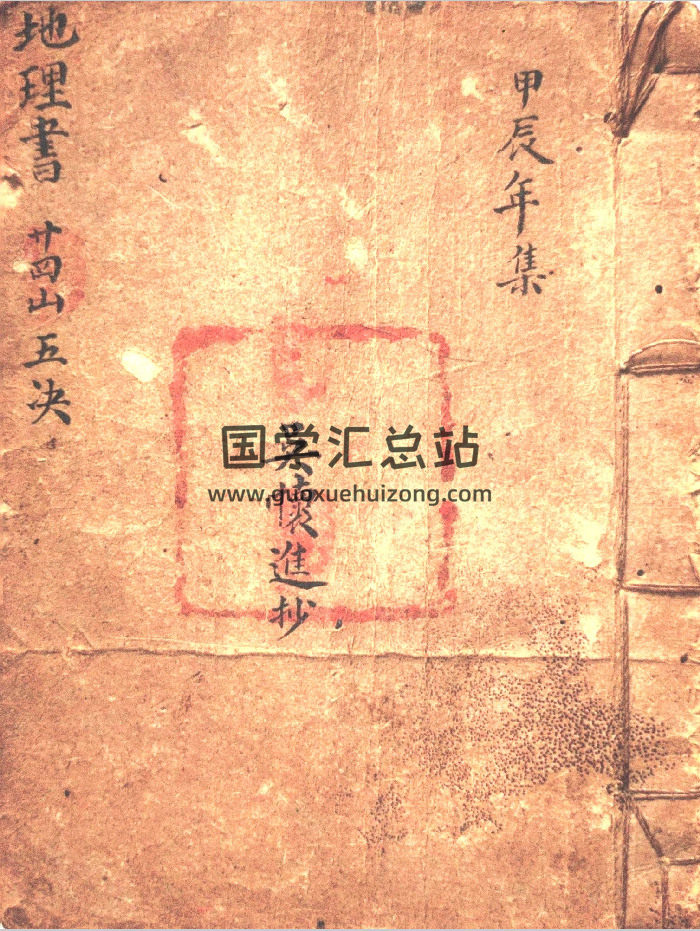 甲辰年集
懷進抄
地理書 廿四山五决
国学汇总站
www.guoxuehuizong.com